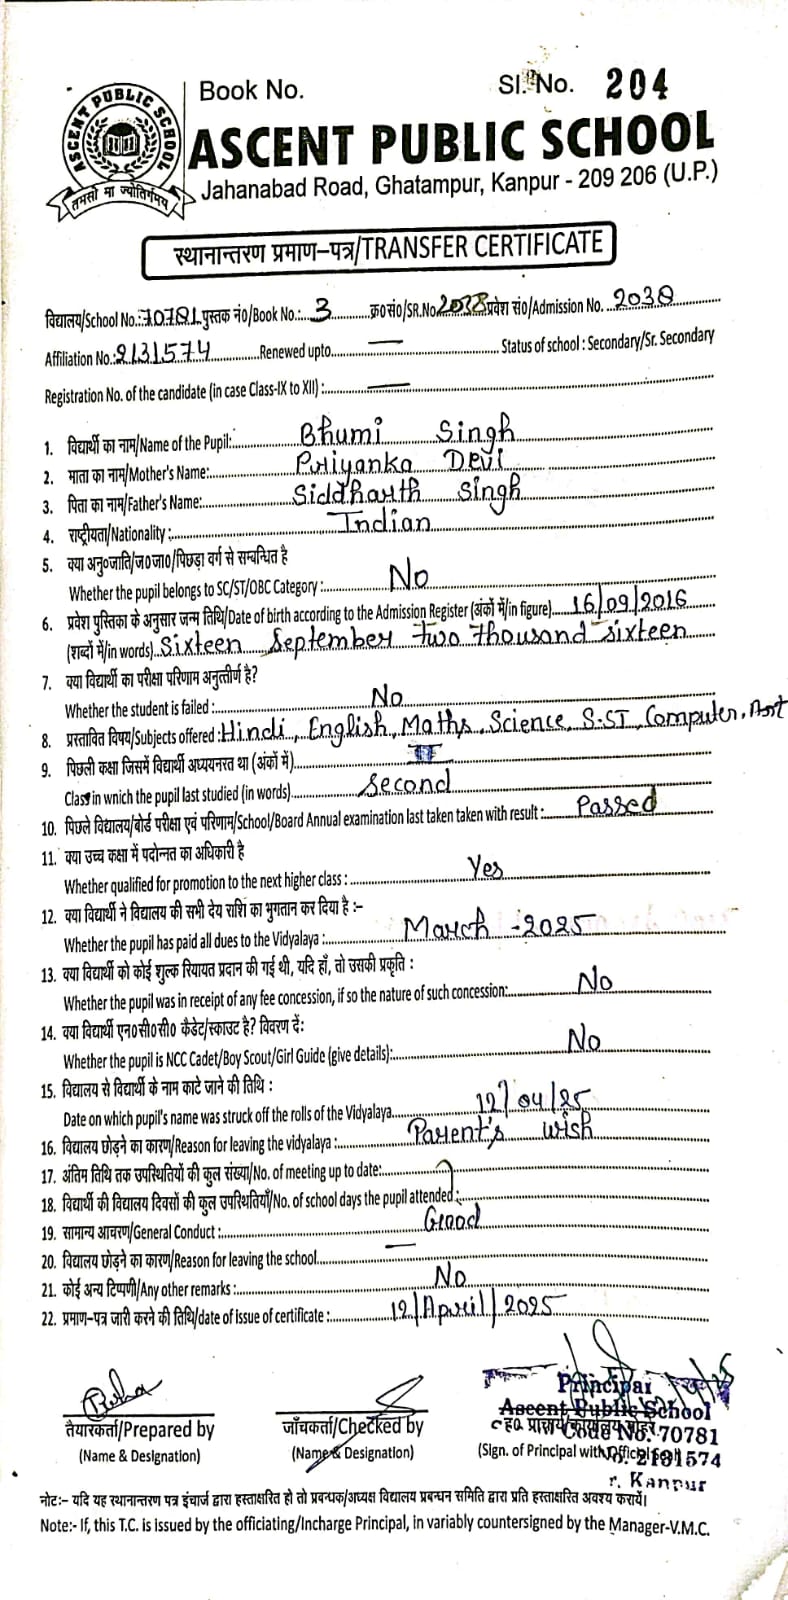 Book No. Sl. No. 204
ASCENT PUBLIC SCHOOL
तमसो मा ज्योतिर्गमय
ASCENT PUBLIC SCHOOL
Jahanabad Road, Ghatampur, Kanpur - 209 206 (U.P.)
स्थानान्तरण प्रमाण-पत्र/TRANSFER CERTIFICATE
विद्यालय/School No.:70781 पुस्तक नं०/Book No.: 3 क्र०सं०/SR.No 2038 प्रवेश सं०/Admission No. 2038
Affiliation No.:2131574 Renewed upto — Status of school : Secondary/Sr. Secondary
Registration No. of the candidate (in case Class-IX to XII) : —
1. विद्यार्थी का नाम/Name of the Pupil: Bhumi Singh
2. माता का नाम/Mother's Name: Priyanka Devi
3. पिता का नाम/Father's Name: Siddharth Singh
4. राष्ट्रीयता/Nationality : Indian
5. क्या अनु०जाति/ज०जा०/पिछड़ा वर्ग से सम्बन्धित है
Whether the pupil belongs to SC/ST/OBC Category : No
6. प्रवेश पुस्तिका के अनुसार जन्म तिथि/Date of birth according to the Admission Register (अंकों में/in figure) 16/09/2016
(शब्दों में/in words) Sixteen September two thousand sixteen
7. क्या विद्यार्थी का परीक्षा परिणाम अनुत्तीर्ण है?
Whether the student is failed : No
8. प्रस्तावित विषय/Subjects offered : Hindi, English, Maths, Science, S.ST, Computer, Art
9. पिछली कक्षा जिसमें विद्यार्थी अध्ययनरत था (अंकों में) II
Class in wnich the pupil last studied (in words) Second
10. पिछले विद्यालय/बोर्ड परीक्षा एवं परिणाम/School/Board Annual examination last taken taken with result : Passed
11. क्या उच्च कक्षा में पदोन्नत का अधिकारी है
Whether qualified for promotion to the next higher class : Yes
12. क्या विद्यार्थी ने विद्यालय की सभी देय राशि का भुगतान कर दिया है :-
Whether the pupil has paid all dues to the Vidyalaya : March - 2025
13. क्या विद्यार्थी को कोई शुल्क रियायत प्रदान की गई थी, यदि हाँ, तो उसकी प्रकृति :
Whether the pupil was in receipt of any fee concession, if so the nature of such concession: No
14. क्या विद्यार्थी एन०सी०सी० कैडेट/स्काउट है? विवरण दें:
Whether the pupil is NCC Cadet/Boy Scout/Girl Guide (give details): No
15. विद्यालय से विद्यार्थी के नाम काटे जाने की तिथि :
Date on which pupil's name was struck off the rolls of the Vidyalaya 12/04/25
16. विद्यालय छोड़ने का कारण/Reason for leaving the vidyalaya : Parent's wish
17. अंतिम तिथि तक उपस्थितियों की कुल संख्या/No. of meeting up to date:
18. विद्यार्थी की विद्यालय दिवसों की कुल उपस्थितियाँ/No. of school days the pupil attended :
19. सामान्य आचरण/General Conduct : Good
20. विद्यालय छोड़ने का कारण/Reason for leaving the school —
21. कोई अन्य टिप्पणी/Any other remarks : No
22. प्रमाण-पत्र जारी करने की तिथि/date of issue of certificate : 12/April/2025
Principal
Ascent Public School
Code No. 70781
No. 2131574
r. Kanpur
तैयारकर्ता/Prepared by जाँचकर्ता/Checked by
(Name & Designation) (Name & Designation) (Sign. of Principal with Official Seal)
नोट:- यदि यह स्थानान्तरण पत्र इंचार्ज द्वारा हस्ताक्षरित हो तो प्रबन्धक/अध्यक्ष विद्यालय प्रबन्धन समिति द्वारा प्रति हस्ताक्षरित अवश्य करायें।
Note:- If, this T.C. is issued by the officiating/Incharge Principal, in variably countersigned by the Manager-V.M.C.